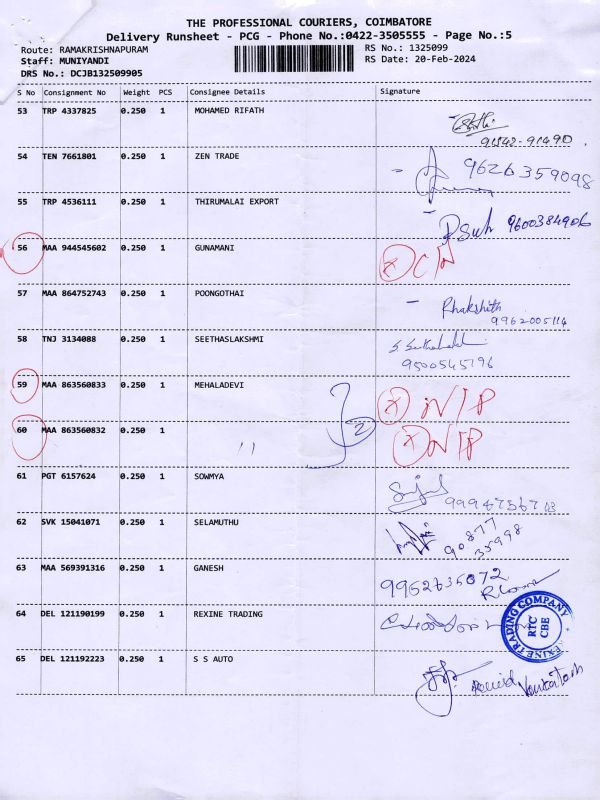 THE PROFESSIONAL COURIERS, COIMBATORE
Delivery Runsheet - PCG - Phone No.:0422-3505555 - Page No.:5
Route: RAMAKRISHNAPURAM RS No.: 1325099
Staff: MUNIYANDI RS Date: 20-Feb-2024
DRS No.: DCJB132509905
S No Consignment No Weight PCS Consignee Details Signature
53 TRP 4337825 0.250 1 MOHAMED RIFATH
91542-91490
54 TEN 7661801 0.250 1 ZEN TRADE 9626359098
55 TRP 4536111 0.250 1 THIRUMALAI EXPORT
9600384906
56 MAA 944545602 0.250 1 GUNAMANI
57 MAA 864752743 0.250 1 POONGOTHAI
Rhakshith
9962005114
58 TNJ 3134088 0.250 1 SEETHASLAKSHMI
9500545796
59 MAA 863560833 0.250 1 MEHALADEVI
N/P
2
60 MAA 863560832 0.250 1 " N/P
61 PGT 6157624 0.250 1 SOWMYA
62 SVK 15041071 0.250 1 SELAMUTHU
90877
35998
63 MAA 569391316 0.250 1 GANESH
9952635072
64 DEL 121190199 0.250 1 REXINE TRADING
REXINE TRADING COMPANY
RTC
CBE
65 DEL 121192223 0.250 1 S S AUTO